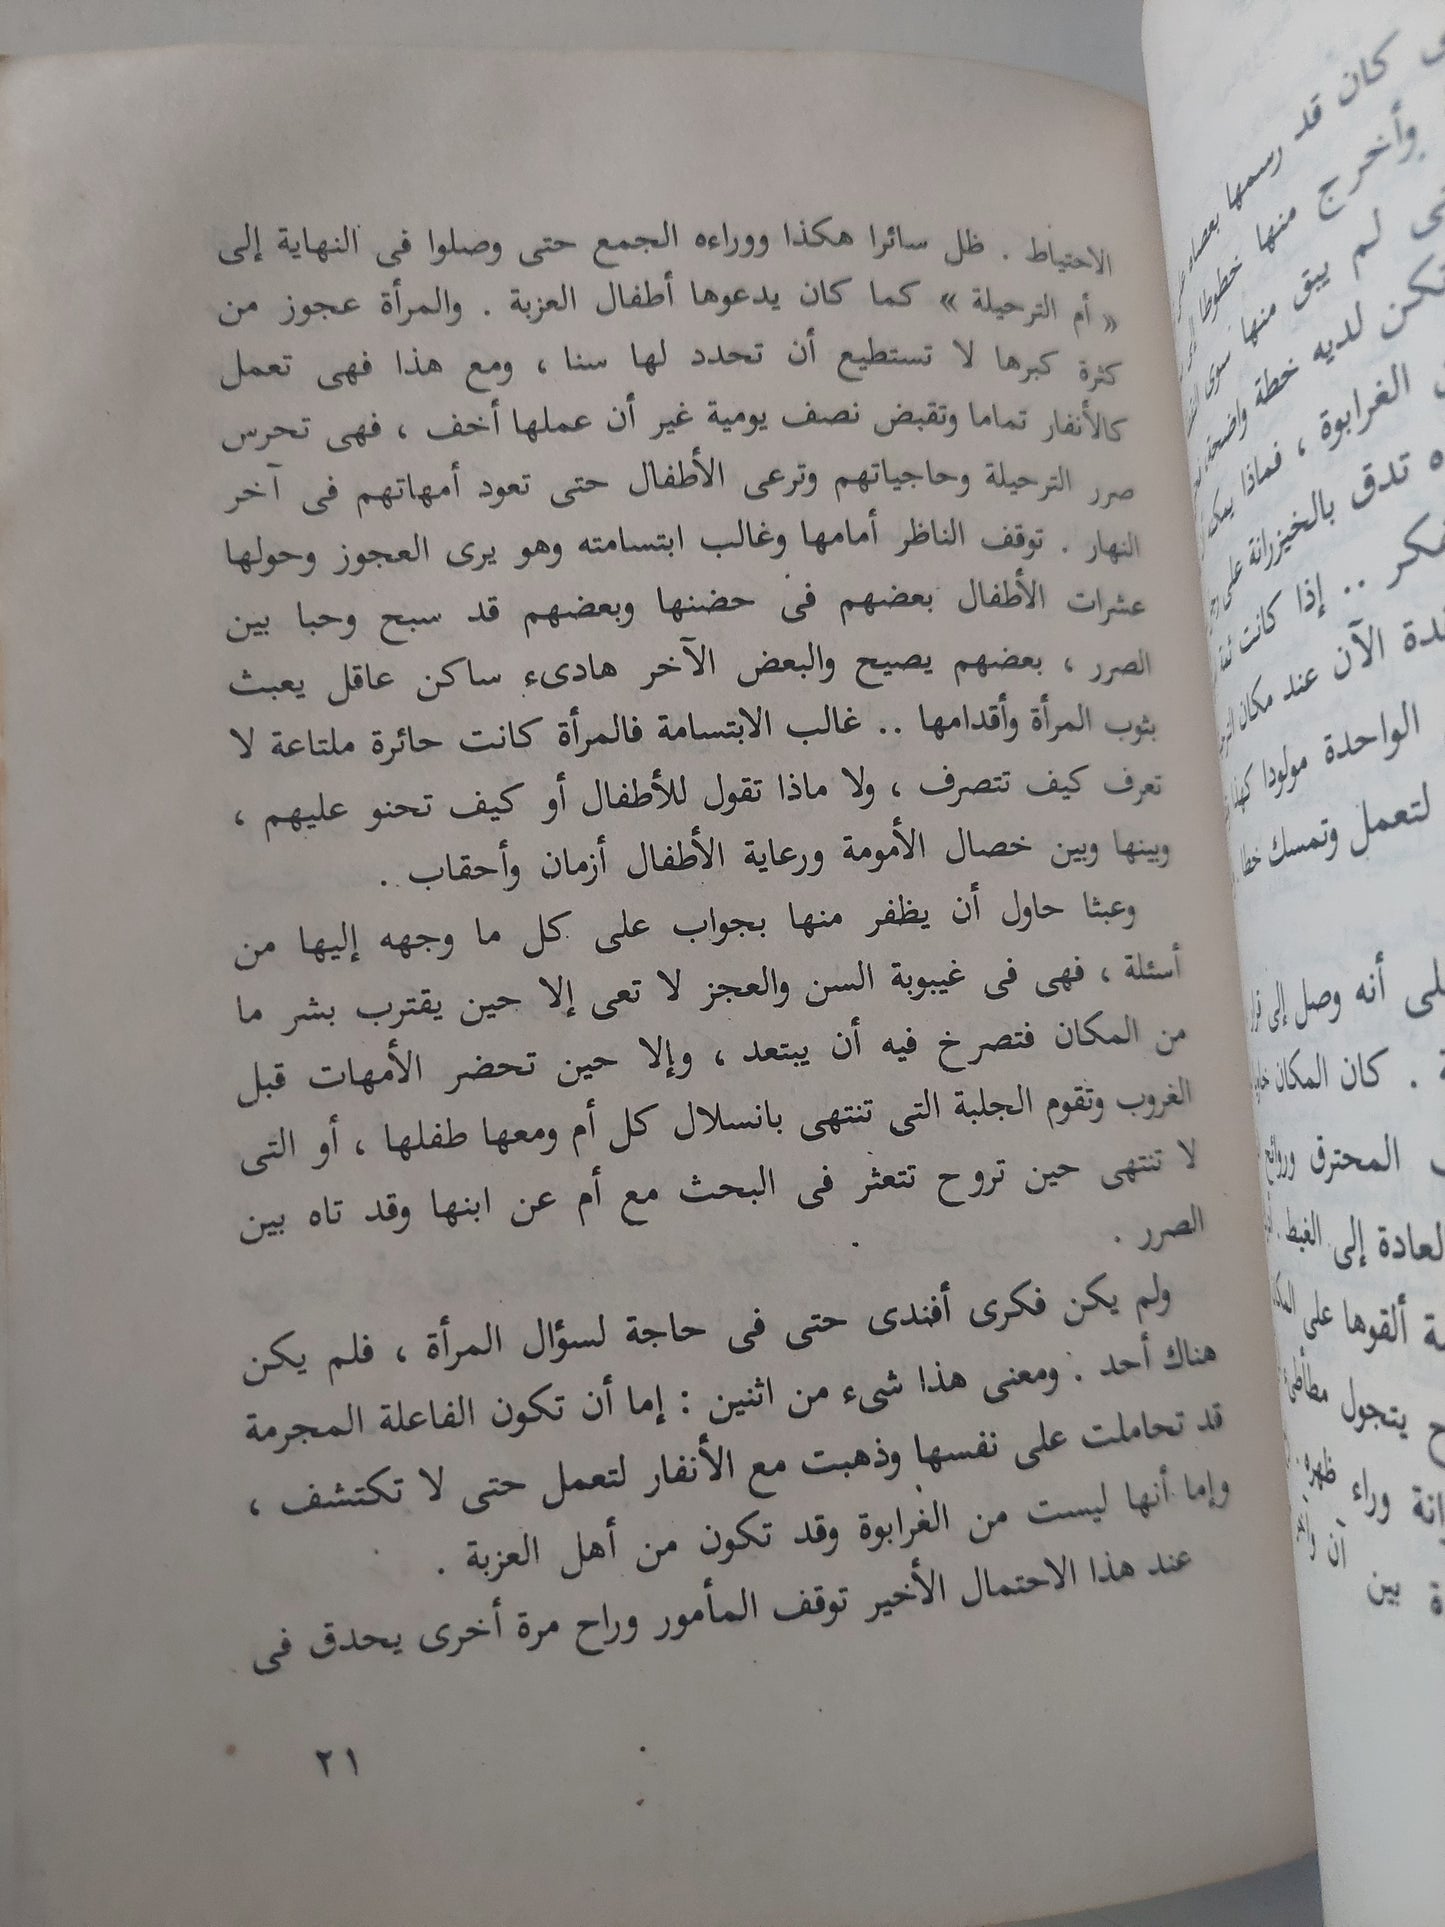 الاحتياط . ظل سائرا هكذا ووراءه الجمع حتى وصلوا فى النهاية إلى
« أم الترحيلة » كما كان يدعوها أطفال العزبة . والمرأة عجوز من
كثرة كبرها لا تستطيع أن تحدد لها سنا ، ومع هذا فهى تعمل
كالأنفار تماما وتقبض نصف يومية غير أن عملها أخف ، فهى تحرس
صرر الترحيلة وحاجياتهم وترعى الأطفال حتى تعود أمهاتهم فى آخر
النهار . توقف الناظر أمامها وغالب ابتسامته وهو يرى العجوز وحولها
عشرات الأطفال بعضهم فى حضنها وبعضهم قد سبح وحبا بين
الصرر ، بعضهم يصيح والبعض الآخر هادىء ساكن عاقل يعبث
بثوب المرأة وأقدامها .. غالب الابتسامة فالمرأة كانت حائرة ملتاعة لا
تعرف كيف تتصرف ، ولا ماذا تقول للأطفال أو كيف تحنو عليهم ،
وبينها وبين خصال الأمومة ورعاية الأطفال أزمان وأحقاب .
وعبثا حاول أن يظفر منها بجواب على كل ما وجهه إليها من
أسئلة ، فهى فى غيبوبة السن والعجز لا تعى إلا حين يقترب بشر ما
من المكان فتصرخ فيه أن يبتعد ، وإلا حين تحضر الأمهات قبل
الغروب وتقوم الجلبة التى تنتهى بانسلال كل أم ومعها طفلها ، أو التى
لا تنتهى حين تروح تتعثر فى البحث مع أم عن ابنها وقد تاه بين
الصرر .
ولم يكن فكرى أفندى حتى فى حاجة لسؤال المرأة ، فلم يكن
هناك أحد . ومعنى هذا شىء من اثنين : إما أن تكون الفاعلة المجرمة
قد تحاملت على نفسها وذهبت مع الأنفار لتعمل حتى لا تكتشف ،
وإما أنها ليست من الغرابوة وقد تكون من أهل العزبة .
عند هذا الاحتمال الأخير توقف المأمور وراح مرة أخرى يحدق فى
٢١
كان قد رسمها بعصاه
وأخرج منها خطوطا
لم يبق منها سوى
تكن لديه خطة واضحة
الغرابوة ، فماذا يمكن
تدق بالخيزرانة على
.. إذا كانت
الآن عند مكان
الواحدة مولودا
لتعمل وتمسك خطا
أنه وصل إلى
. كان المكان
المحترق وروائح
العادة إلى الغبط .
ألقوها على
يتجول مطأطئ
وراء ظهره
بين آن